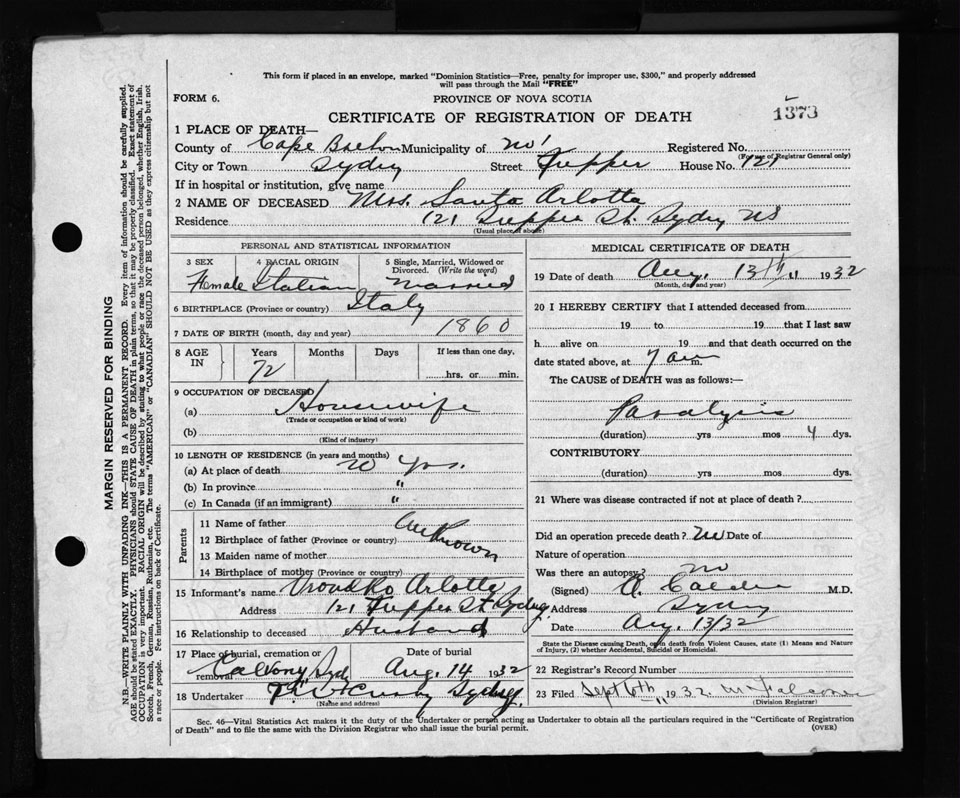 This form if placed in an envelope, marked "Dominion Statistics—Free, penalty for improper use, $300," and properly addressed
will pass through the Mail "FREE"
FORM 6.
PROVINCE OF NOVA SCOTIA
1373
CERTIFICATE OF REGISTRATION OF DEATH
1 PLACE OF DEATH—
County of Cape Breton Municipality of Registered No.
(For use of Registrar General only)
City or Town Sydney Street Tupper House No. 121
If in hospital or institution, give name
2 NAME OF DECEASED Mrs. Santa Arlotta
Residence 121 Tupper St. Sydney NS
(Usual place of abode)
PERSONAL AND STATISTICAL INFORMATION
3 SEX 4 RACIAL ORIGIN 5 Single, Married, Widowed or
Divorced. (Write the word)
Female Italian Married
6 BIRTHPLACE (Province or country) Italy
7 DATE OF BIRTH (month, day and year) 1860
8 AGE IN Years Months Days If less than one day,
72 hrs. or min.
9 OCCUPATION OF DECEASED
(a) Housewife
(Trade or occupation or kind of work)
(b)
(Kind of industry)
10 LENGTH OF RESIDENCE (in years and months)
(a) At place of death 20 Yrs.
(b) In province "
(c) In Canada (if an immigrant) "
Parents
11 Name of father
12 Birthplace of father (Province or country) Unknown
13 Maiden name of mother
14 Birthplace of mother (Province or country)
15 Informant's name Arlotta
Address 121 Tupper St. Sydney
16 Relationship to deceased Husband
17 Place of burial, cremation or removal Date of burial
Calvary Sydney Aug. 14 1932
18 Undertaker Sydney
(Name and address)
MEDICAL CERTIFICATE OF DEATH
19 Date of death Aug. 13th 1932
(Month, day and year)
20 I HEREBY CERTIFY that I attended deceased from
19 to 19 that I last saw
h alive on 19 and that death occurred on the
date stated above, at 7 am m.
The CAUSE of DEATH was as follows:—
Paralysis
(duration) yrs mos 4 dys.
CONTRIBUTORY
(duration) yrs mos dys.
21 Where was disease contracted if not at place of death?
Did an operation precede death? no Date of
Nature of operation
Was there an autopsy? no
(Signed) A. Calder M.D.
Address Sydney
Date Aug. 13/32
State the Disease causing Death, or in death from Violent Causes, state (1) Means and Nature
of Injury, (2) whether Accidental, Suicidal or Homicidal.
22 Registrar's Record Number
23 Filed Sept 6th 1932.
(Division Registrar)
Sec. 46—Vital Statistics Act makes it the duty of the Undertaker or person acting as Undertaker to obtain all the particulars required in the "Certificate of Registration
of Death" and to file the same with the Division Registrar who shall issue the burial permit.
(OVER)
MARGIN RESERVED FOR BINDING
N.B.—WRITE PLAINLY WITH UNFADING INK—THIS IS A PERMANENT RECORD. Every item of information should be carefully supplied.
AGE should be stated EXACTLY. PHYSICIANS should STATE CAUSE OF DEATH in plain terms, so that it may be properly classified. Exact statement of
OCCUPATION is very important. RACIAL ORIGIN will be described by stating to what people or race the deceased person belonged, whether English, Irish,
Scotch, French, German, Russian, Ruthenian, etc. The terms "AMERICAN" or "CANADIAN" SHOULD NOT BE USED as they express citizenship but not
a race or people. See instructions on back of Certificate.